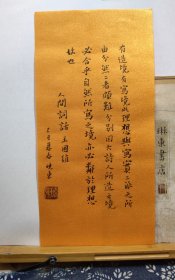 有造境有寫境此理想與寫實二派之所
由分然二者頗難分別因大詩人所造之境
必合乎自然所寫之境亦必鄰於理想
故也
人間詞話王國維
琳東書店